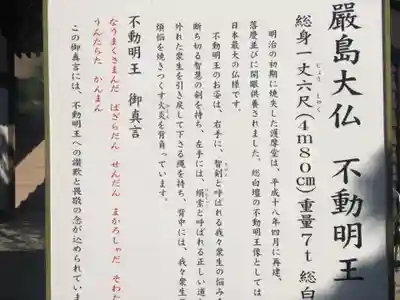 嚴島大仏 不動明王
総身一丈六尺(4m80㎝)重量7t 総白
じょう しゃく
明治の初期に焼失した護摩堂は、平成十八年四月に再建、
落慶並びに開眼供養されました。総白壇の不動明王像としては
日本最大の仏様です。
不動明王のお姿は、右手に、智剣と呼ばれる我々衆生の悩みを
ちけん
断ち切る智慧の剣を持ち、左手には、羂索と呼ばれる正しい道
けんさく
外れた衆生を引き戻して下さる縄を持ち、背中には、我々衆生
煩悩を焼きつくす火炎を背負っています。
不動明王 御真言
なうまくさまんだ ばざらだん せんだん まかろしゃだ そわた
うんたらた かんまん
この御真言には、不動明王への讃歎と畏敬の念が込められていま